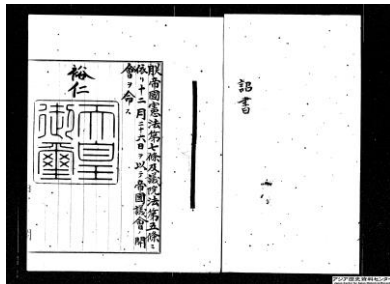 詔書
朕帝國憲法第七條及議院法第五條ニ
依リ十二月二十六日ヲ以テ帝國議會ノ開
會ヲ命ス
裕仁
天皇
御璽
アジア歴史資料センター